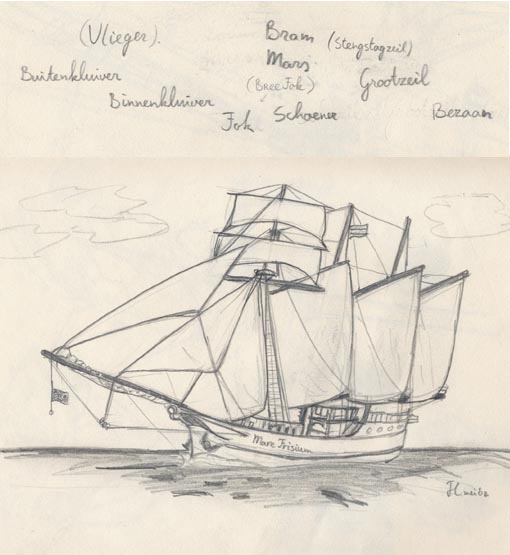 (Vlieger).
Bram (Stengstagzeil)
Mars
Buitenkluiver
(Breefok)
Grootzeil
Binnenkluiver
Fok
Schoener
Bezaan
Mare Frisium